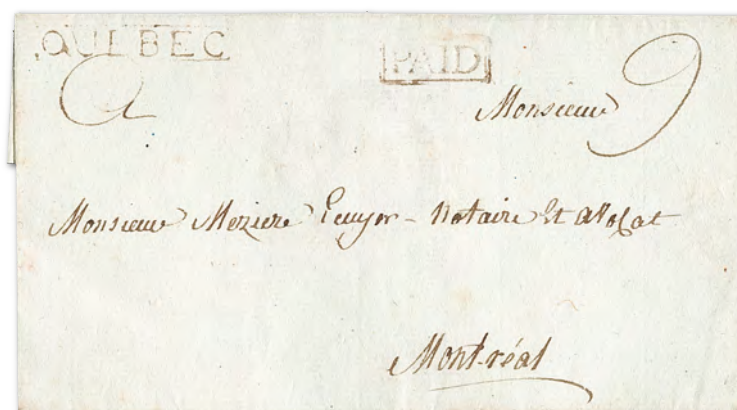 QUEBEC PAID
A Monsieur 9
Monsieur Meziere Ecuyer - Notaire Et avocat
Montréal